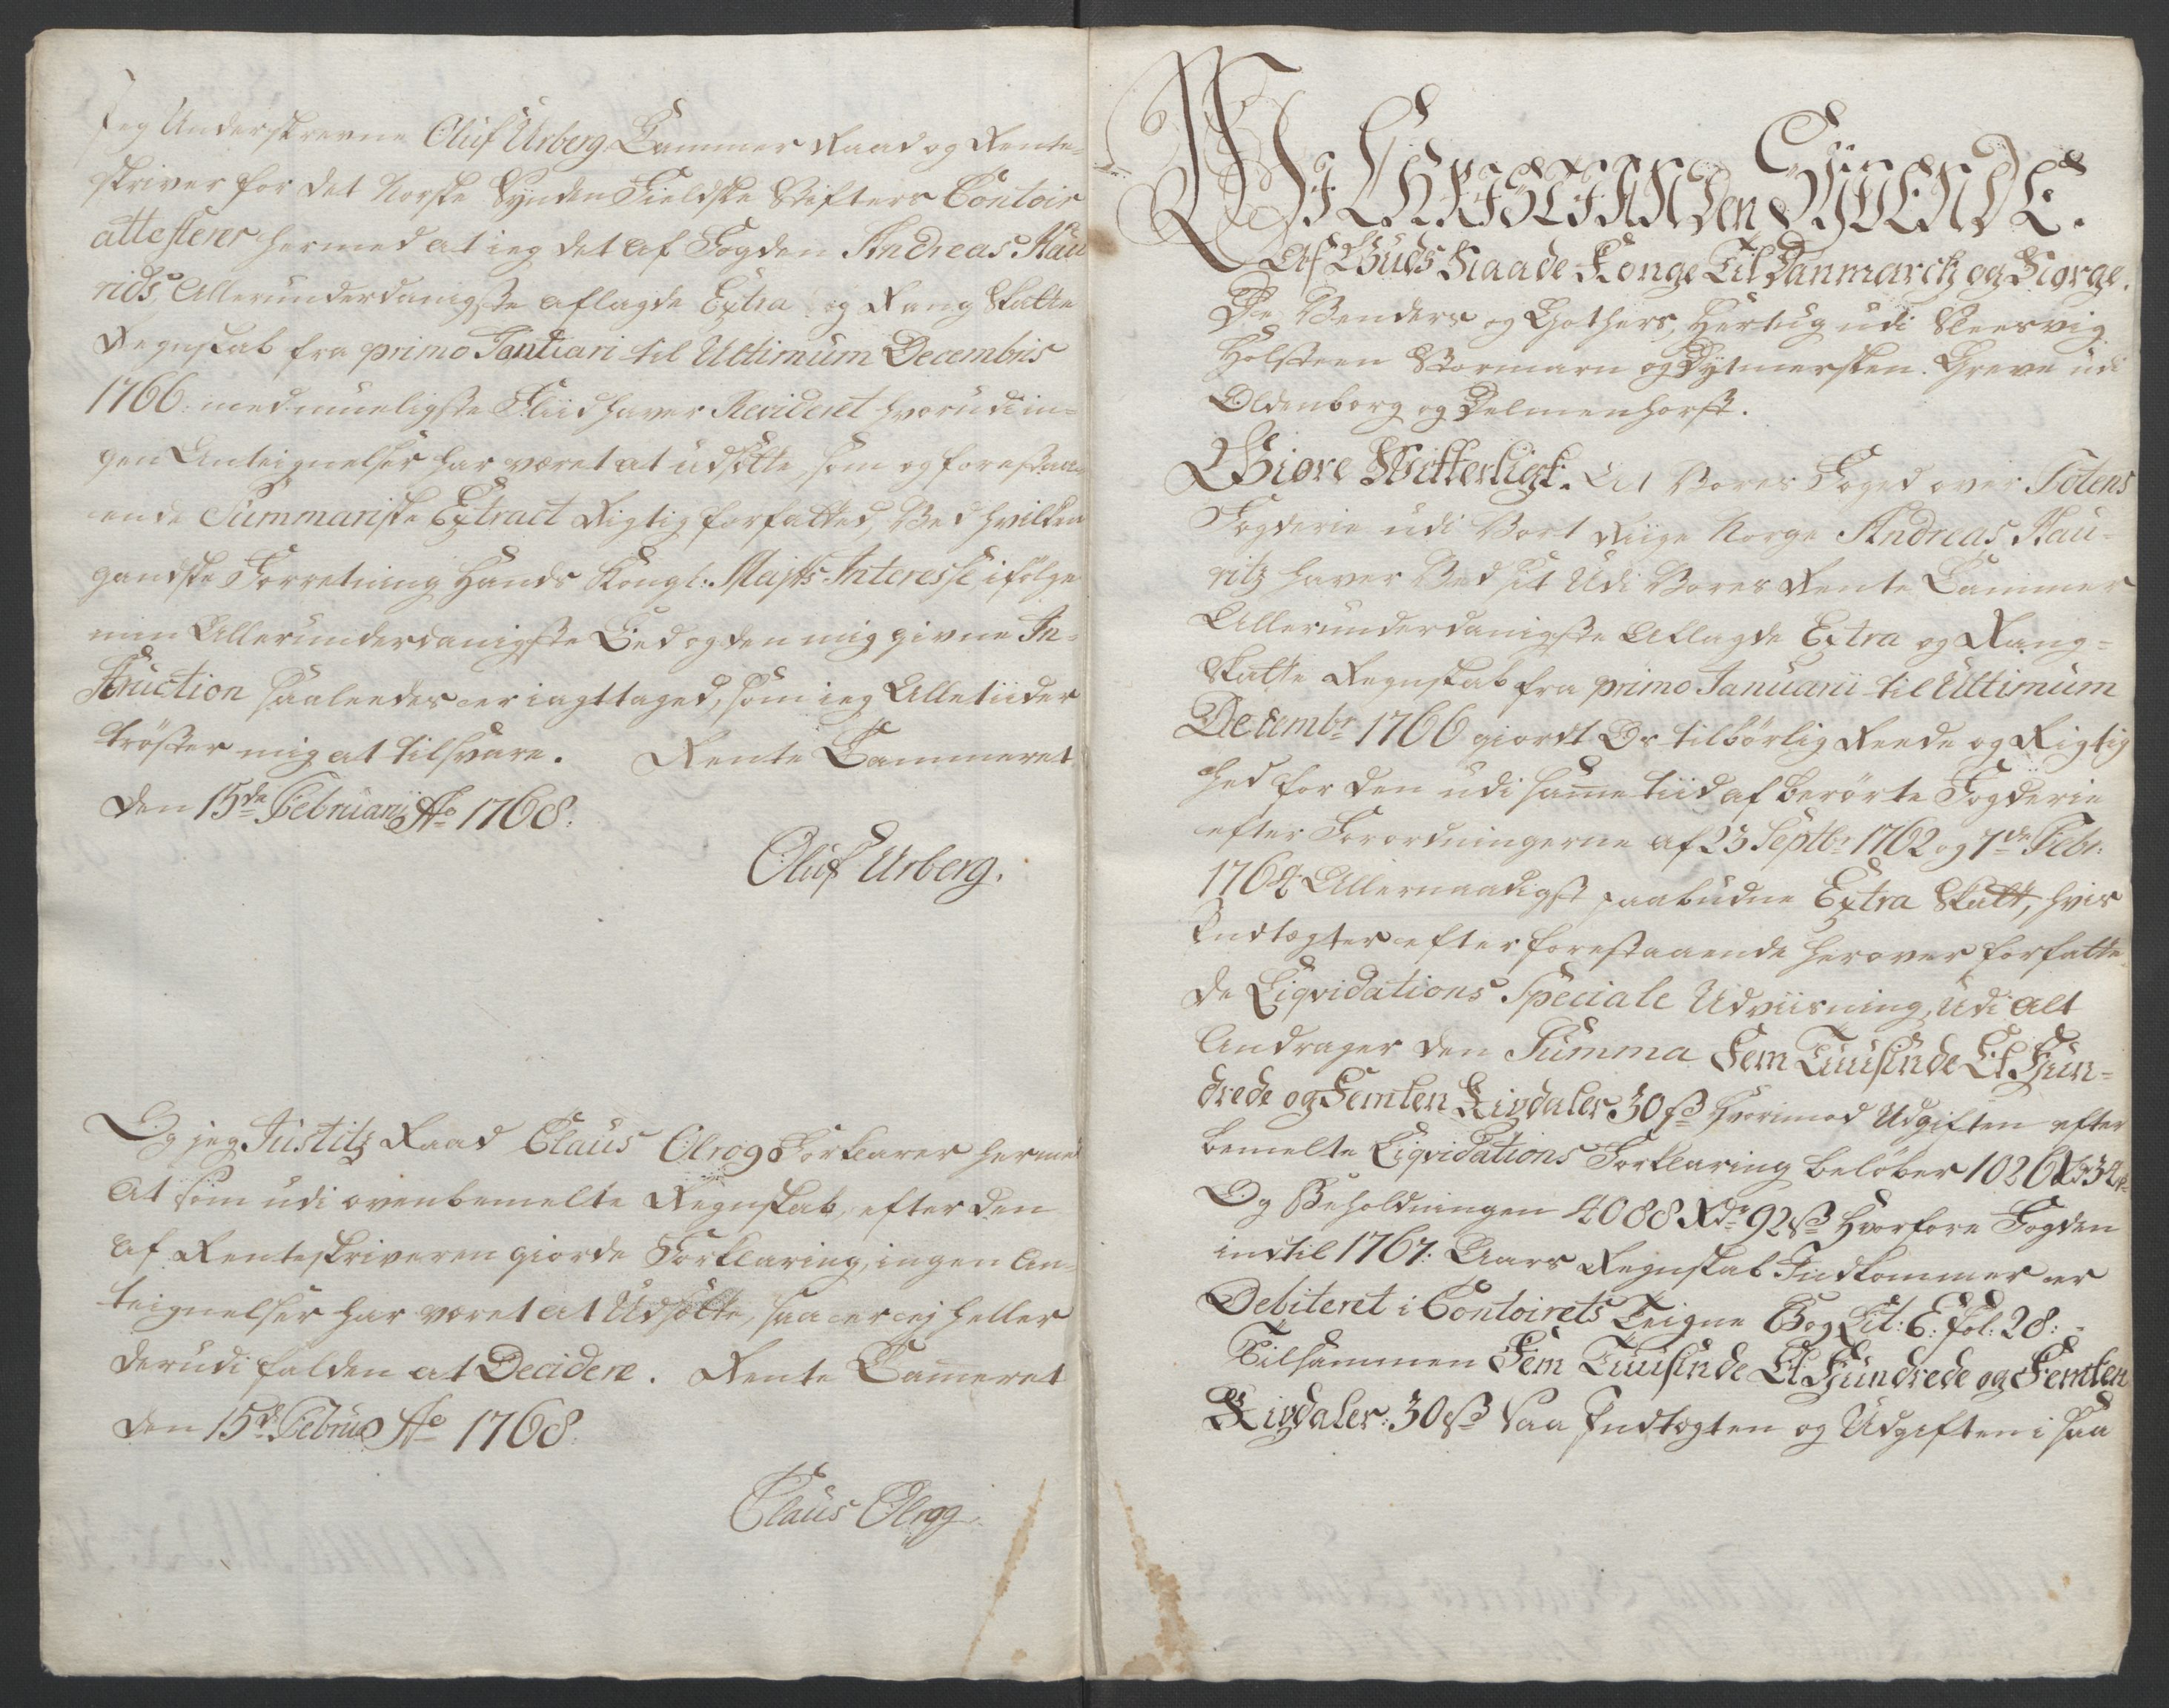 Jeg Underskrevne Oluf Urberg Cammer Raad og Rente-
skriver for det Norske Synden Fieldske Stifters Contoir
attesterer hermed at ieg det af Fogden Andreas Rau
rids, Allerunderdanigste aflagde Extra og Rang Skatte
Regnskab fra primo Januari til Ultimum Decembris
1766: med mueligste Fliid haver Revideret hvorudi in-
gen Anteignelser har været at udsætte, som og forestaa-
ende Summariske Extract Rigtig forfatted, Ved hvilken
gandske Forretning Hands Kongl: Majts Interesse ifølge
min Allerunderdanigste Eed og den mig givne In-
struction saaleedes er iagttaged, som ieg Alletiider
trøster mig at tilsvare. Rente Cammeret
den 15de Februarij Ao 1768.
Oluf Urberg.
Og jeg Justitz Raad Claus Olrog Forklarer hermed
At som udi ovenbemelte Regnskab, efter den
af Renteskriveren giorde Forklaring, ingen An-
teignelser har været at Udsætte, saa er ej heller
derudi falden at Decidere. Rente Cam̄eret
den 15de Febru Ao 1768.
Claus Olrog.
Wi CHRISTIAN den SYVENDE.
Af Guds Naade Konge Til Danmarck og Norge.
De Venders og Gothers, Hertug udi Sleesvig
Holsteen Stormarn og Dytmersken. Greve udi
Oldenborg og Delmenhorst.
Giøre Witterligt. At Vores Foged over Totens
Fogderie udi Vort Riige Norge Andreas Rau-
ritz haver Ved sit Udi Vores Rente Cammer
Allerunderdanigste Aflagde Extra og Rang-
Skatte Regnskab fra primo Januarii til Ultimum
Decembr 1766 giordt Os tilbørlig Reede og Rigtig
hed for den udi sam̄e tiid af berørte Fogderie
efter Forordningerne af 23 Septbr 1762 og 7de Febr:
1764 Allernaadigst paabudne Extra Skatt, hvis
Indtægter efter forestaaende herover forfatte-
de Liqvidations Speciale Udviisning, Udi alt
Andrager den Summa Fem Tuusinde Et Hun-
drede og Femten Rixdaler 30 ß Hvorimod Udgiften efter
bemelte Liqvidations Forklaring beløber 1026 Rdr 34 ß
Og Beholdningen 4088 Rdr 92 ß Hvorfore Fogden
indtil 1767: Aars Regnskab Indkommer er
Debiteret i Contoirets Teigne Bog Lit: E: fol: 28:
Tilsammen Fem Tuusinde Et Hundrede og Femten
Rixdaler: 30 ß Saa Indtægten og Udgiften i saa